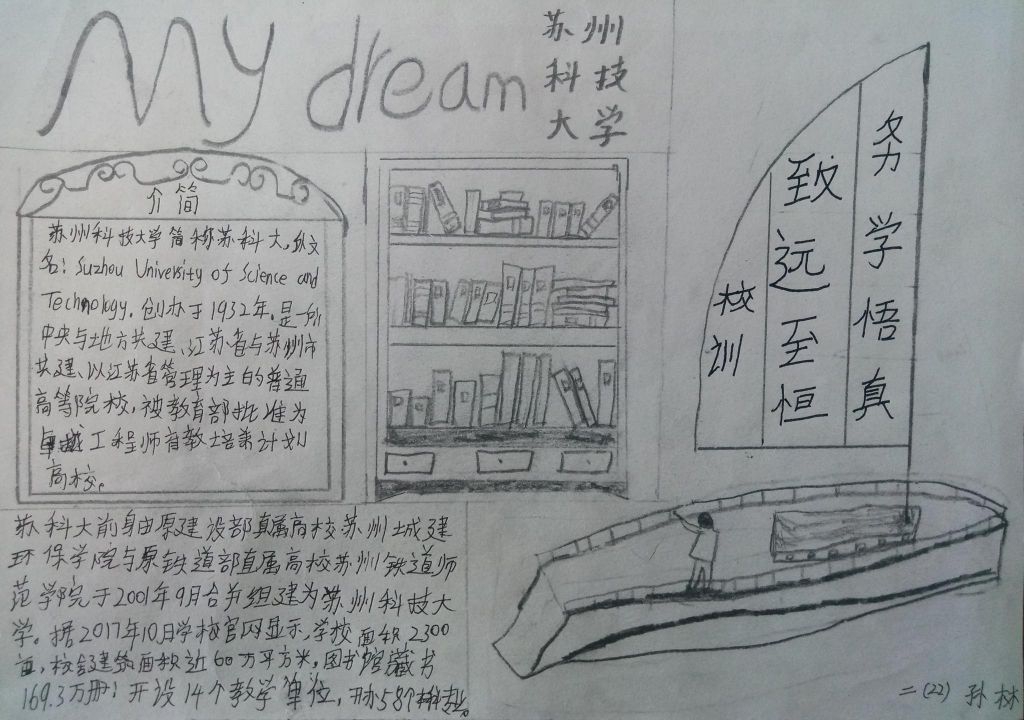 My dream
苏州
科技
大学
介简
苏州科技大学简称苏科大,外文
名: Suzhou University of Science and
Technology. 创办于1932年.是一所
中央与地方共建、江苏省与苏州市
共建、以江苏省管理为主的普通
高等院校,被教育部批准为
卓越工程师育教培养计划
高校。
苏科大前身由原建设部真属高校苏州城建
环保学院与原铁道部直属高校苏州铁道师
范学院于2001年9月合并组建为苏州科技大
学。据2017年10月学校官网显示,学校面积2300
亩,校舍建筑面积近60万平方米,图书馆藏书
169.3万册;开设14个教学单位,开办58个
务学悟真
致远至恒
校训
二(22) 孙林